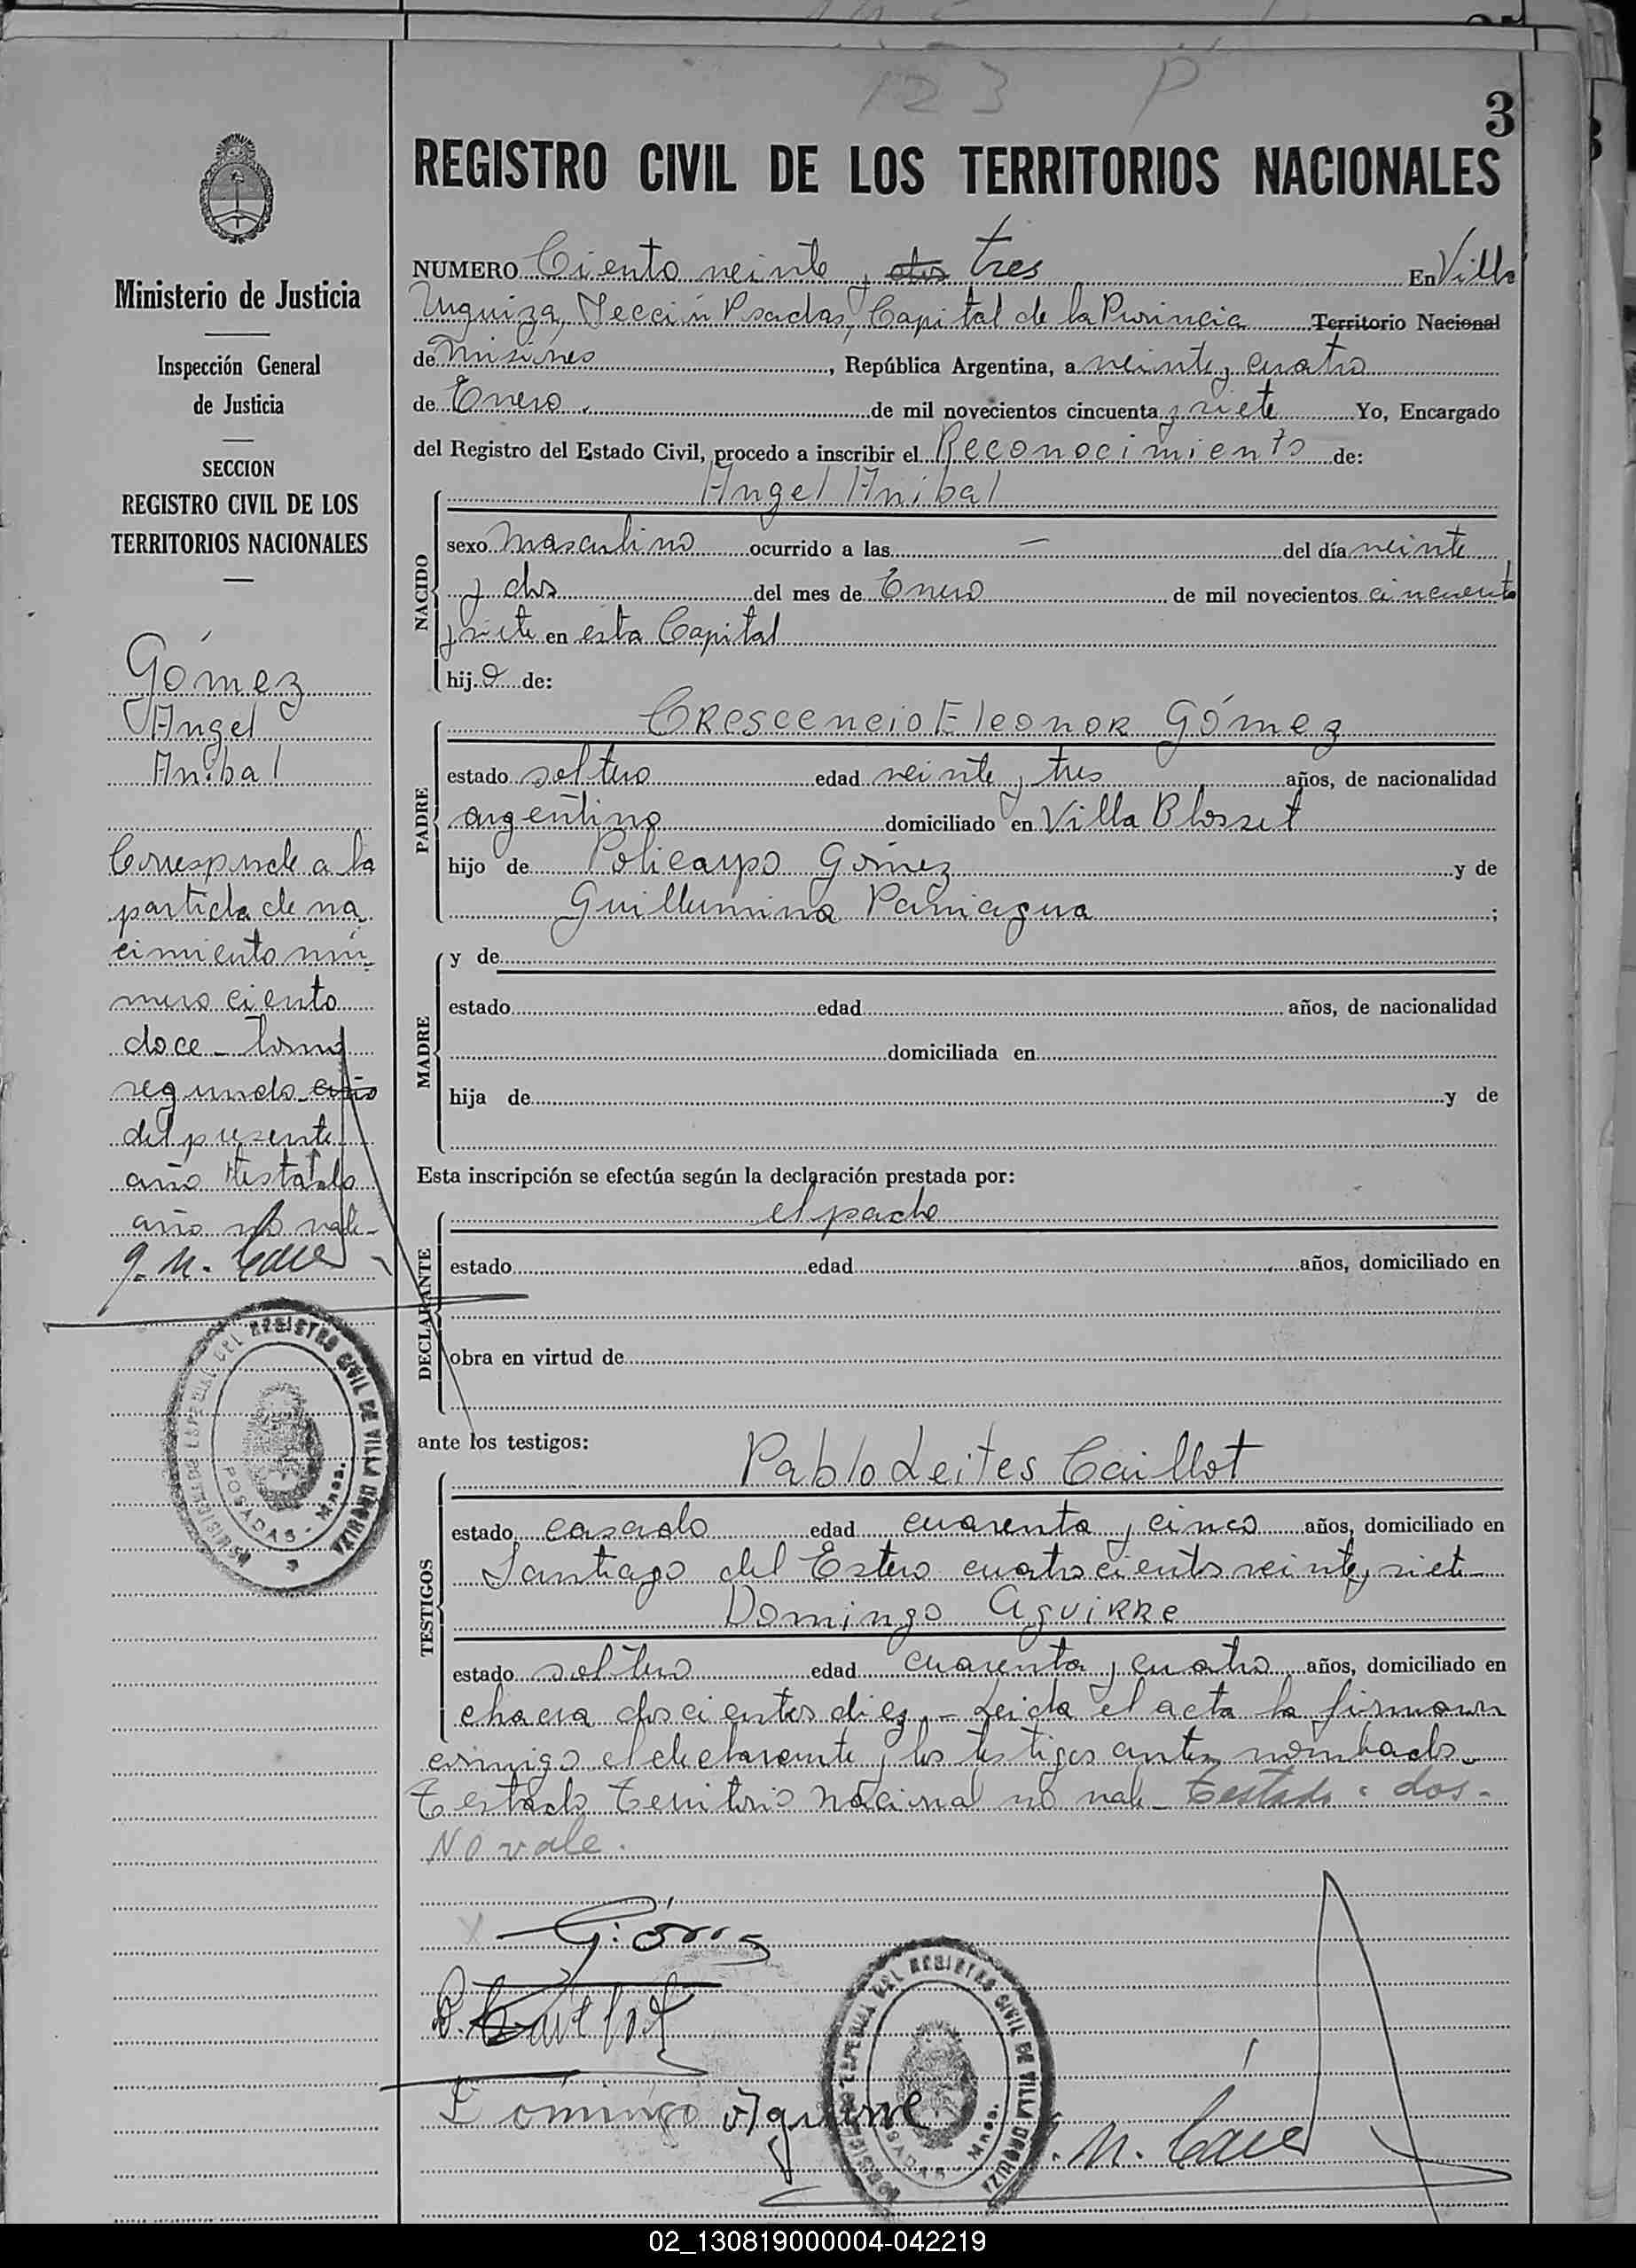 123 P
3
REGISTRO CIVIL DE LOS TERRITORIOS NACIONALES
Ministerio de Justicia
Inspección General
de Justicia
SECCION
REGISTRO CIVIL DE LOS
TERRITORIOS NACIONALES
Gómez
Angel
Anibal
Corresponde a la
partida de na
cimiento nú-
mero ciento
doce - tomo
segundo año
del presente
año Testado
año no vale-
NUMERO Ciento veinte y dos tres En Villa
Urquiza, Sección Posadas, Capital de la Provincia Territorio Nacional
de Misiones, República Argentina, a veinte y cuatro
de Enero. de mil novecientos cincuenta y siete Yo, Encargado
del Registro del Estado Civil, procedo a inscribir el Reconocimiento de:
NACIDO
Angel Anibal
sexo masculino ocurrido a las — del día veinte
y dos del mes de Enero de mil novecientos cincuenta
y siete en esta Capital
hijo de:
PADRE
Crescencio Eleonor Gómez
estado soltero edad veinte y tres años, de nacionalidad
argentino domiciliado en Villa Blosset
hijo de Policarpo Gómez y de
Guillermina Paniagua ;
MADRE
y de
estado edad años, de nacionalidad
domiciliada en
hija de y de
Esta inscripción se efectúa según la declaración prestada por:
DECLARANTE
el padre
estado edad años, domiciliado en
obra en virtud de
ante los testigos:
TESTIGOS
Pablo Leites Caillot
estado casado edad cuarenta y cinco años, domiciliado en
Santiago del Estero cuatrocientos veinte y siete
Domingo Aguirre
estado soltero edad cuarenta y cuatro años, domiciliado en
chacra doscientos diez. - Leida el acta la firman
conmigo el declarante y los testigos antes nombrados-
Testado Territorio Nacional no vale - Testado: dos-
No vale.
Domingo Aguirre
DEL REGISTRO CIVIL DE VILLA URQUIZA
POSADAS - Mnes.
DEL REGISTRO CIVIL DE VILLA URQUIZA
POSADAS - Mnes.
02_130819000004-042219